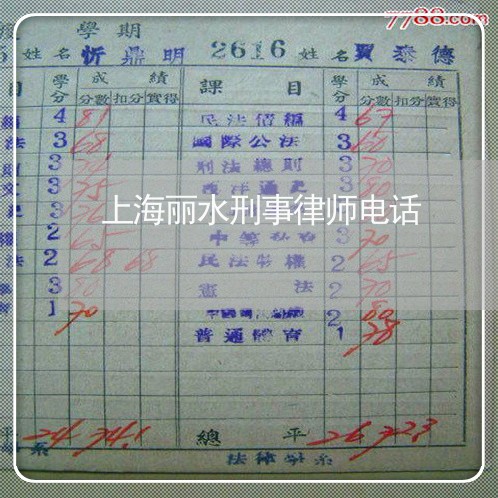 7788.com
學期
姓名 忻鼎明 2616 姓名 賈泰德
目 學分 成績 課目 學分 成績
分數 扣分 實得 分數 扣分 實得
編 4 81 民法債編 4 67
法 3 68 國際公法 3 60
3 刑法總則 3 70
文 3 75 西洋通史 3 80
上海丽水刑事律师电话
權 2 65 3 70
法 2 68 68 民法物權 2 65
3 80 憲法 2 70
育 1 70 2 80
普通體育 1 78
平 24 74.1 總平 26 72.3
系 法律學系